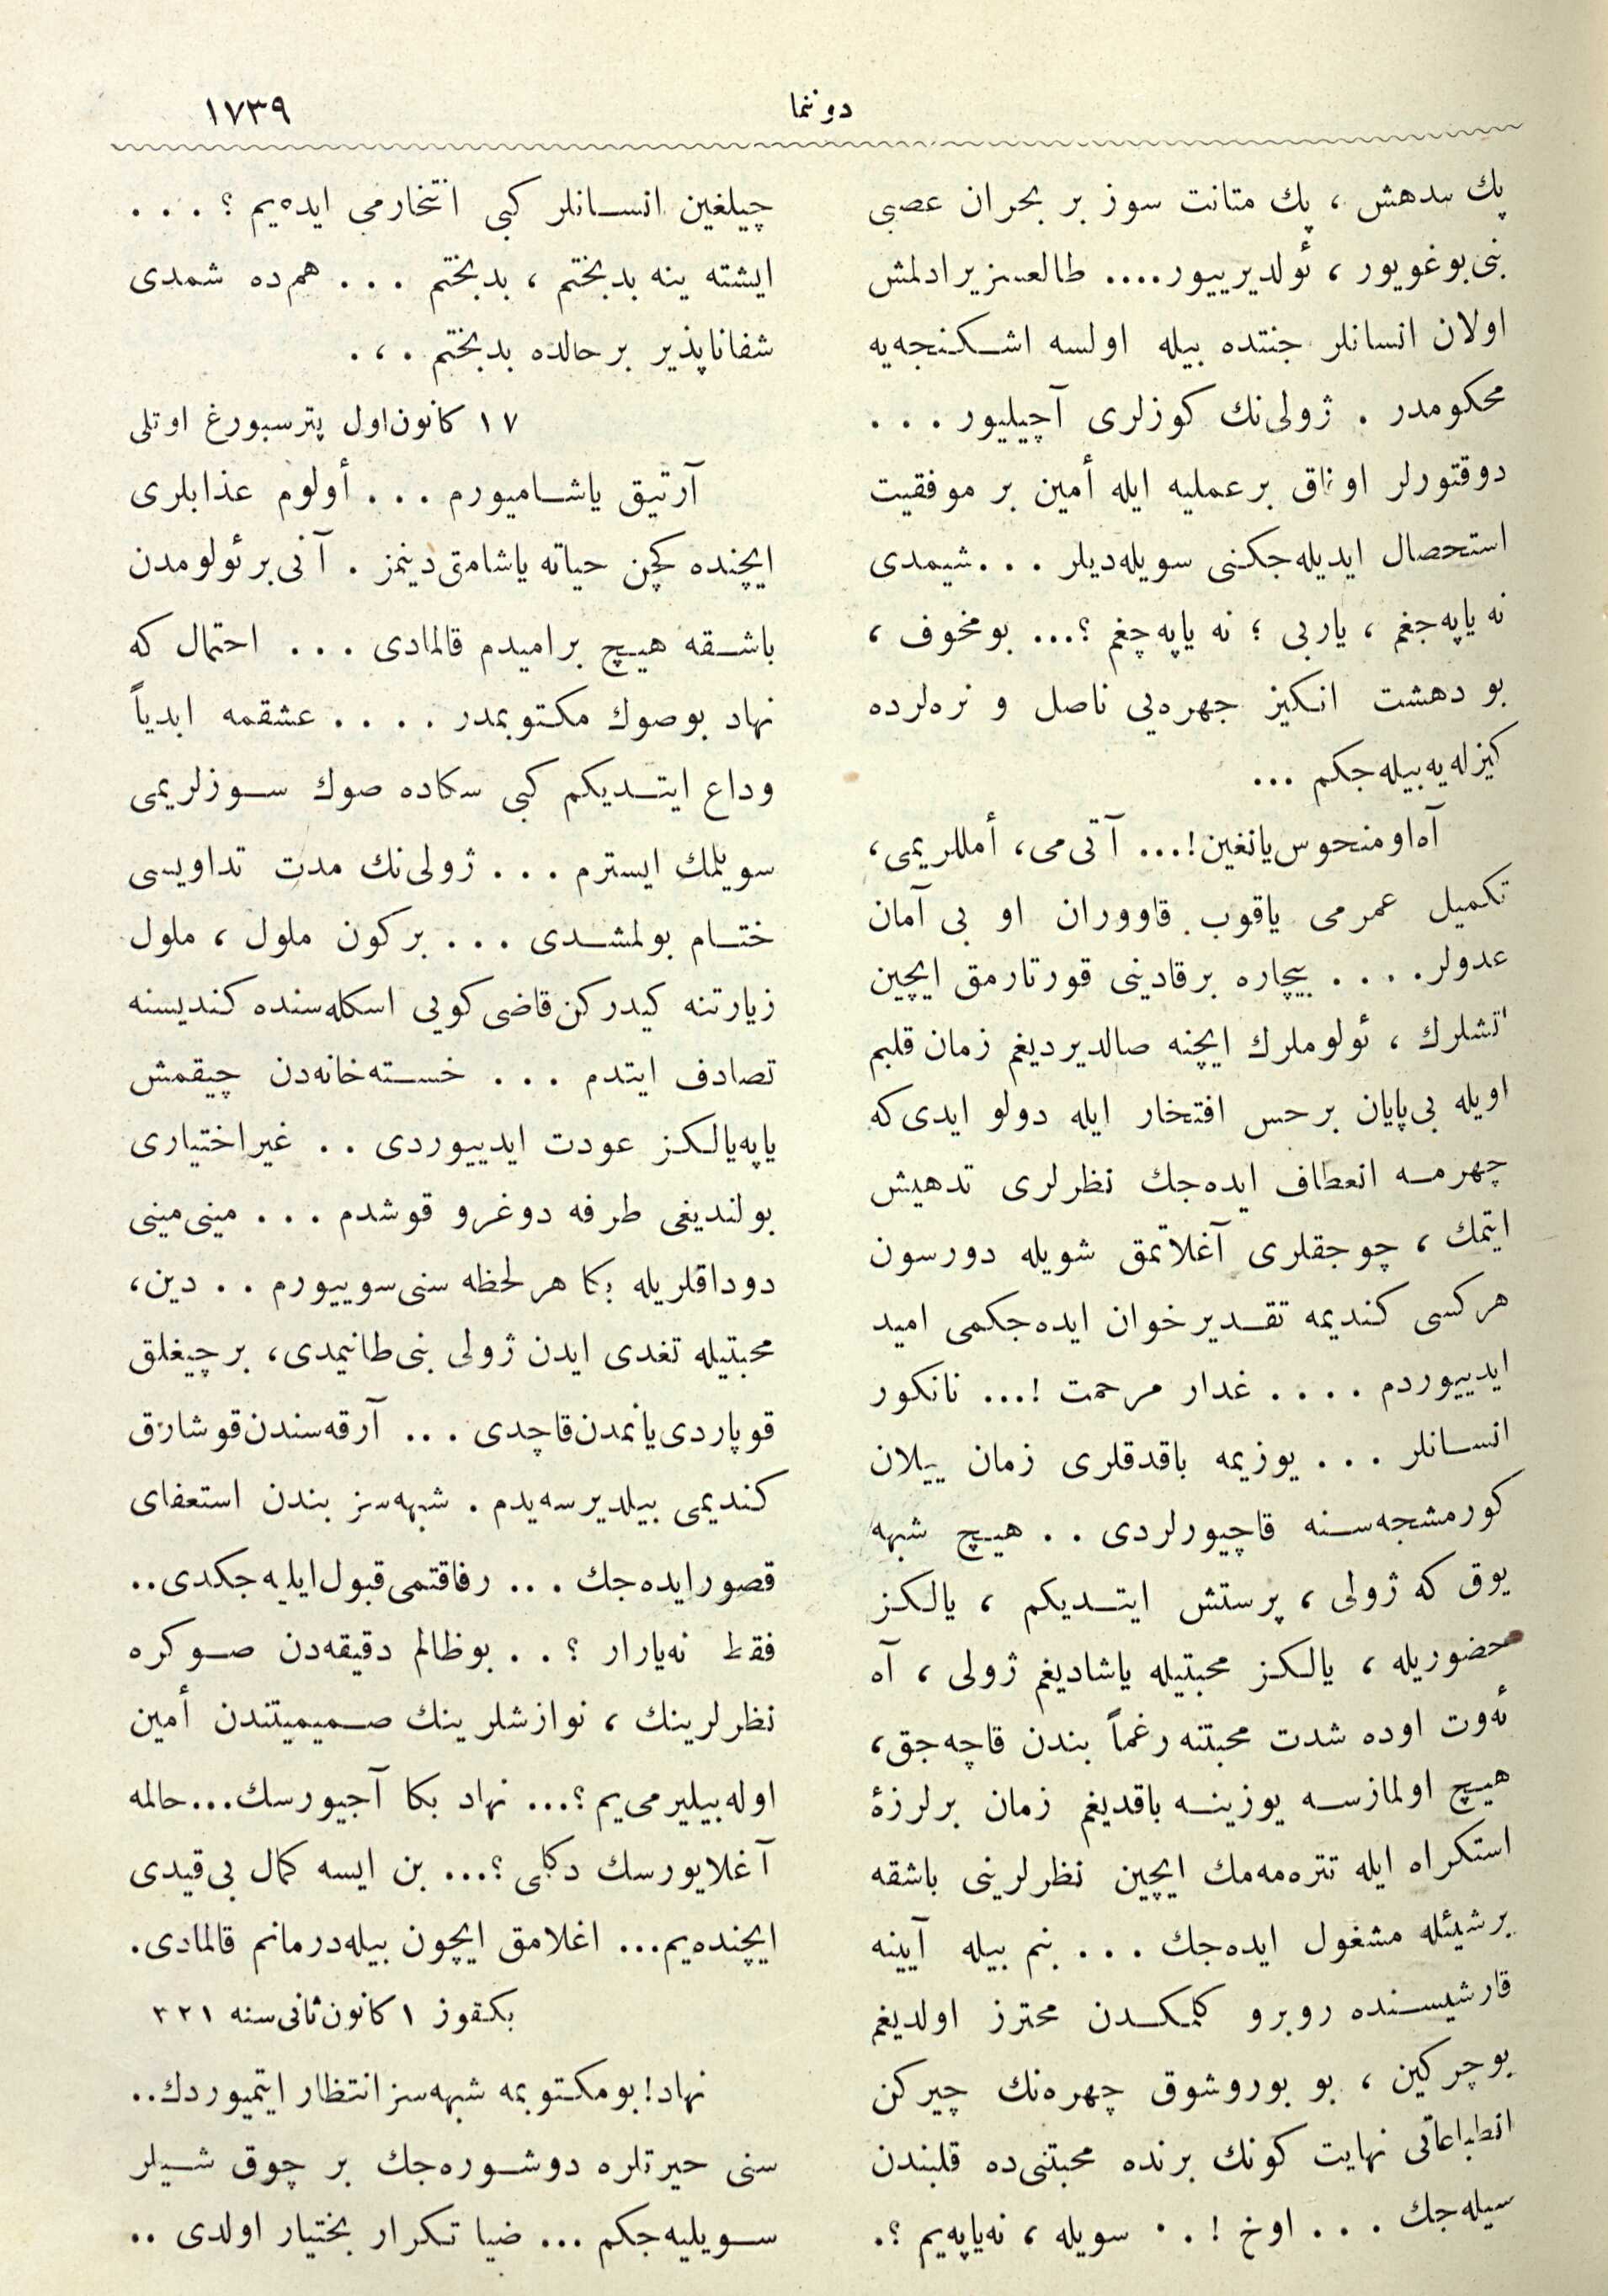 دوننما
١٧٣٩
پك مدهش ، پك متانت سوز بر بحران عصبی
بنی بوغویور ، ئولدیرییور.... طالعسز یرادلمش
اولان انسانلر جنتده بیله اولسه اشكنجه‌یه
محكومدر . ژولی‌نك كوزلری آچیلیور . . .
دوقتورلر اوفاق بر عملیه ایله أمین بر موفقیت
استحصال ایدیله‌جكنی سویله‌دیلر . . . شیمدی
نه یاپه‌جغم ، یاربی ؛ نه یاپه‌چغم ؟... بو مخوف ،
بو دهشت انكیز جهره‌یی ناصل و نره‌لرده
كیزله‌یه‌بیله‌جكم ...
آه او منحوس یانغین !... آتی‌می ، أمللریمی ،
تكمیل عمرمی یاقوب قاووران او بی آمان
عدولر. . . . بیچاره برقادینی قورتارمق ایچین
آتشلرك ، ئولوملرك ایچنه صالدیردیغم زمان قلبم
اویله بی‌پایان برحس افتخار ایله دولو ایدی‌كه
چهرمه انعطاف ایده‌جك نظرلری تدهیش
ایتمك ، چوجقلری آغلاتمق شویله دورسون
هركسی كندیمه تقدیرخوان ایده‌جكمی امید
ایدییوردم . . . . غدار مرحمت !... نانكور
انسانلر . . . یوزیمه باقدقلری زمان ییلان
كورمشجه‌سنه قاچیورلردی . . هیچ شبهه
یوق كه ژولی ، پرستش ایتدیكم ، یالكز
حضوریله ، یالكز محبتیله یاشادیغم ژولی ، آه
ئه‌وت اوده شدت محبتنه رغماً بندن قاچه‌جق ،
هیچ اولمازسه یوزینه باقدیغم زمان برلرزهٔ
استكراه ایله تتره‌مه‌مك ایچین نظرلرینی باشقه
برشیئله مشغول ایده‌جك . . . بنم بیله آیینه
قارشیسنده روبرو كلمكدن محترز اولدیغم
بوچركین ، بو بوروشوق چهره‌نك چیركن
انطباعاتی نهایت كونك برنده محبتنی‌ده قلبندن
سیله‌جك . . . اوخ ! . . سویله ، نه‌یاپه‌یم ؟.
چیلغین انسانلر كبی انتخارمی ایده‌یم ؟ . . .
ایشته ینه بدبختم ، بدبختم . . . هم‌ده شمدی
شفاناپذیر برحالده بدبختم . ، .
١٧ كانون‌اول پترسبورغ اوتلی
آرتیق یاشامیورم . . . أولوم عذابلری
ایچنده كچن حیاته یاشامق دینمز . آنی بر ئولومدن
باشقه هیچ برامیدم قالمادی . . . احتمال كه
نهاد بوصوك مكتوبمدر . . . . عشقمه ابدیاً
وداع ایتدیكم كبی سكاده صوك سوزلریمی
سویلمك ایسترم . . . ژولی‌نك مدت تداویسی
ختام بولمشدی . . . بركون ملول ، ملول
زیارتنه كیدركن قاضی كویی اسكله‌سنده كندیسنه
تصادف ایتدم . . . خسته‌خانه‌دن چیقمش
یاپه‌یالكز عودت ایدییوردی . . غیراختیاری
بولندیغی طرفه دوغرو قوشدم . . . مینی‌مینی
دوداقلریله بكا هر لحظه سنی‌سوییورم . . دین ،
محبتیله تغدی ایدن ژولی بنی طانیمدی ، بر چیغلق
قوپاردی یانمدن قاچدی . . . آرقه‌سندن قوشارق
كندیمی بیلدیرسه‌یدم . شبهه‌سز بندن استعفای
قصور ایده‌جك . . . رفاقتمی قبول ایلیه‌جكدی..
فقط نه‌یارار ؟ . . بوظالم دقیقه‌دن صوكره
نظرلرینك ، نوازشلرینك صمیمیتندن أمین
اوله‌بیلیرمی‌یم ؟... نهاد بكا آجیورسك...حالمه
آغلایورسك دكلی ؟... بن ایسه كمال بی‌قیدی
ایچنده‌یم... اغلامق ایچون بیله‌درمانم قالمادی.
بكقوز ١ كانون‌ثانی سنه ٣٢١
نهاد! بومكتوبمه شبهه‌سز انتظار ایتمیوردك..
سنی حیرتلره دوشوره‌جك بر چوق شیلر
سویلیه‌جكم ... ضیا تكرار بختیار اولدی ..